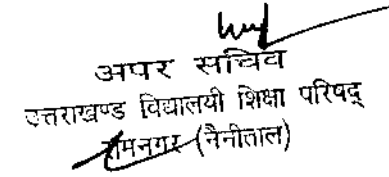 अपर सचिव
उत्तराखण्ड विद्यालयी शिक्षा परिषद्
रामनगर (नैनीताल)